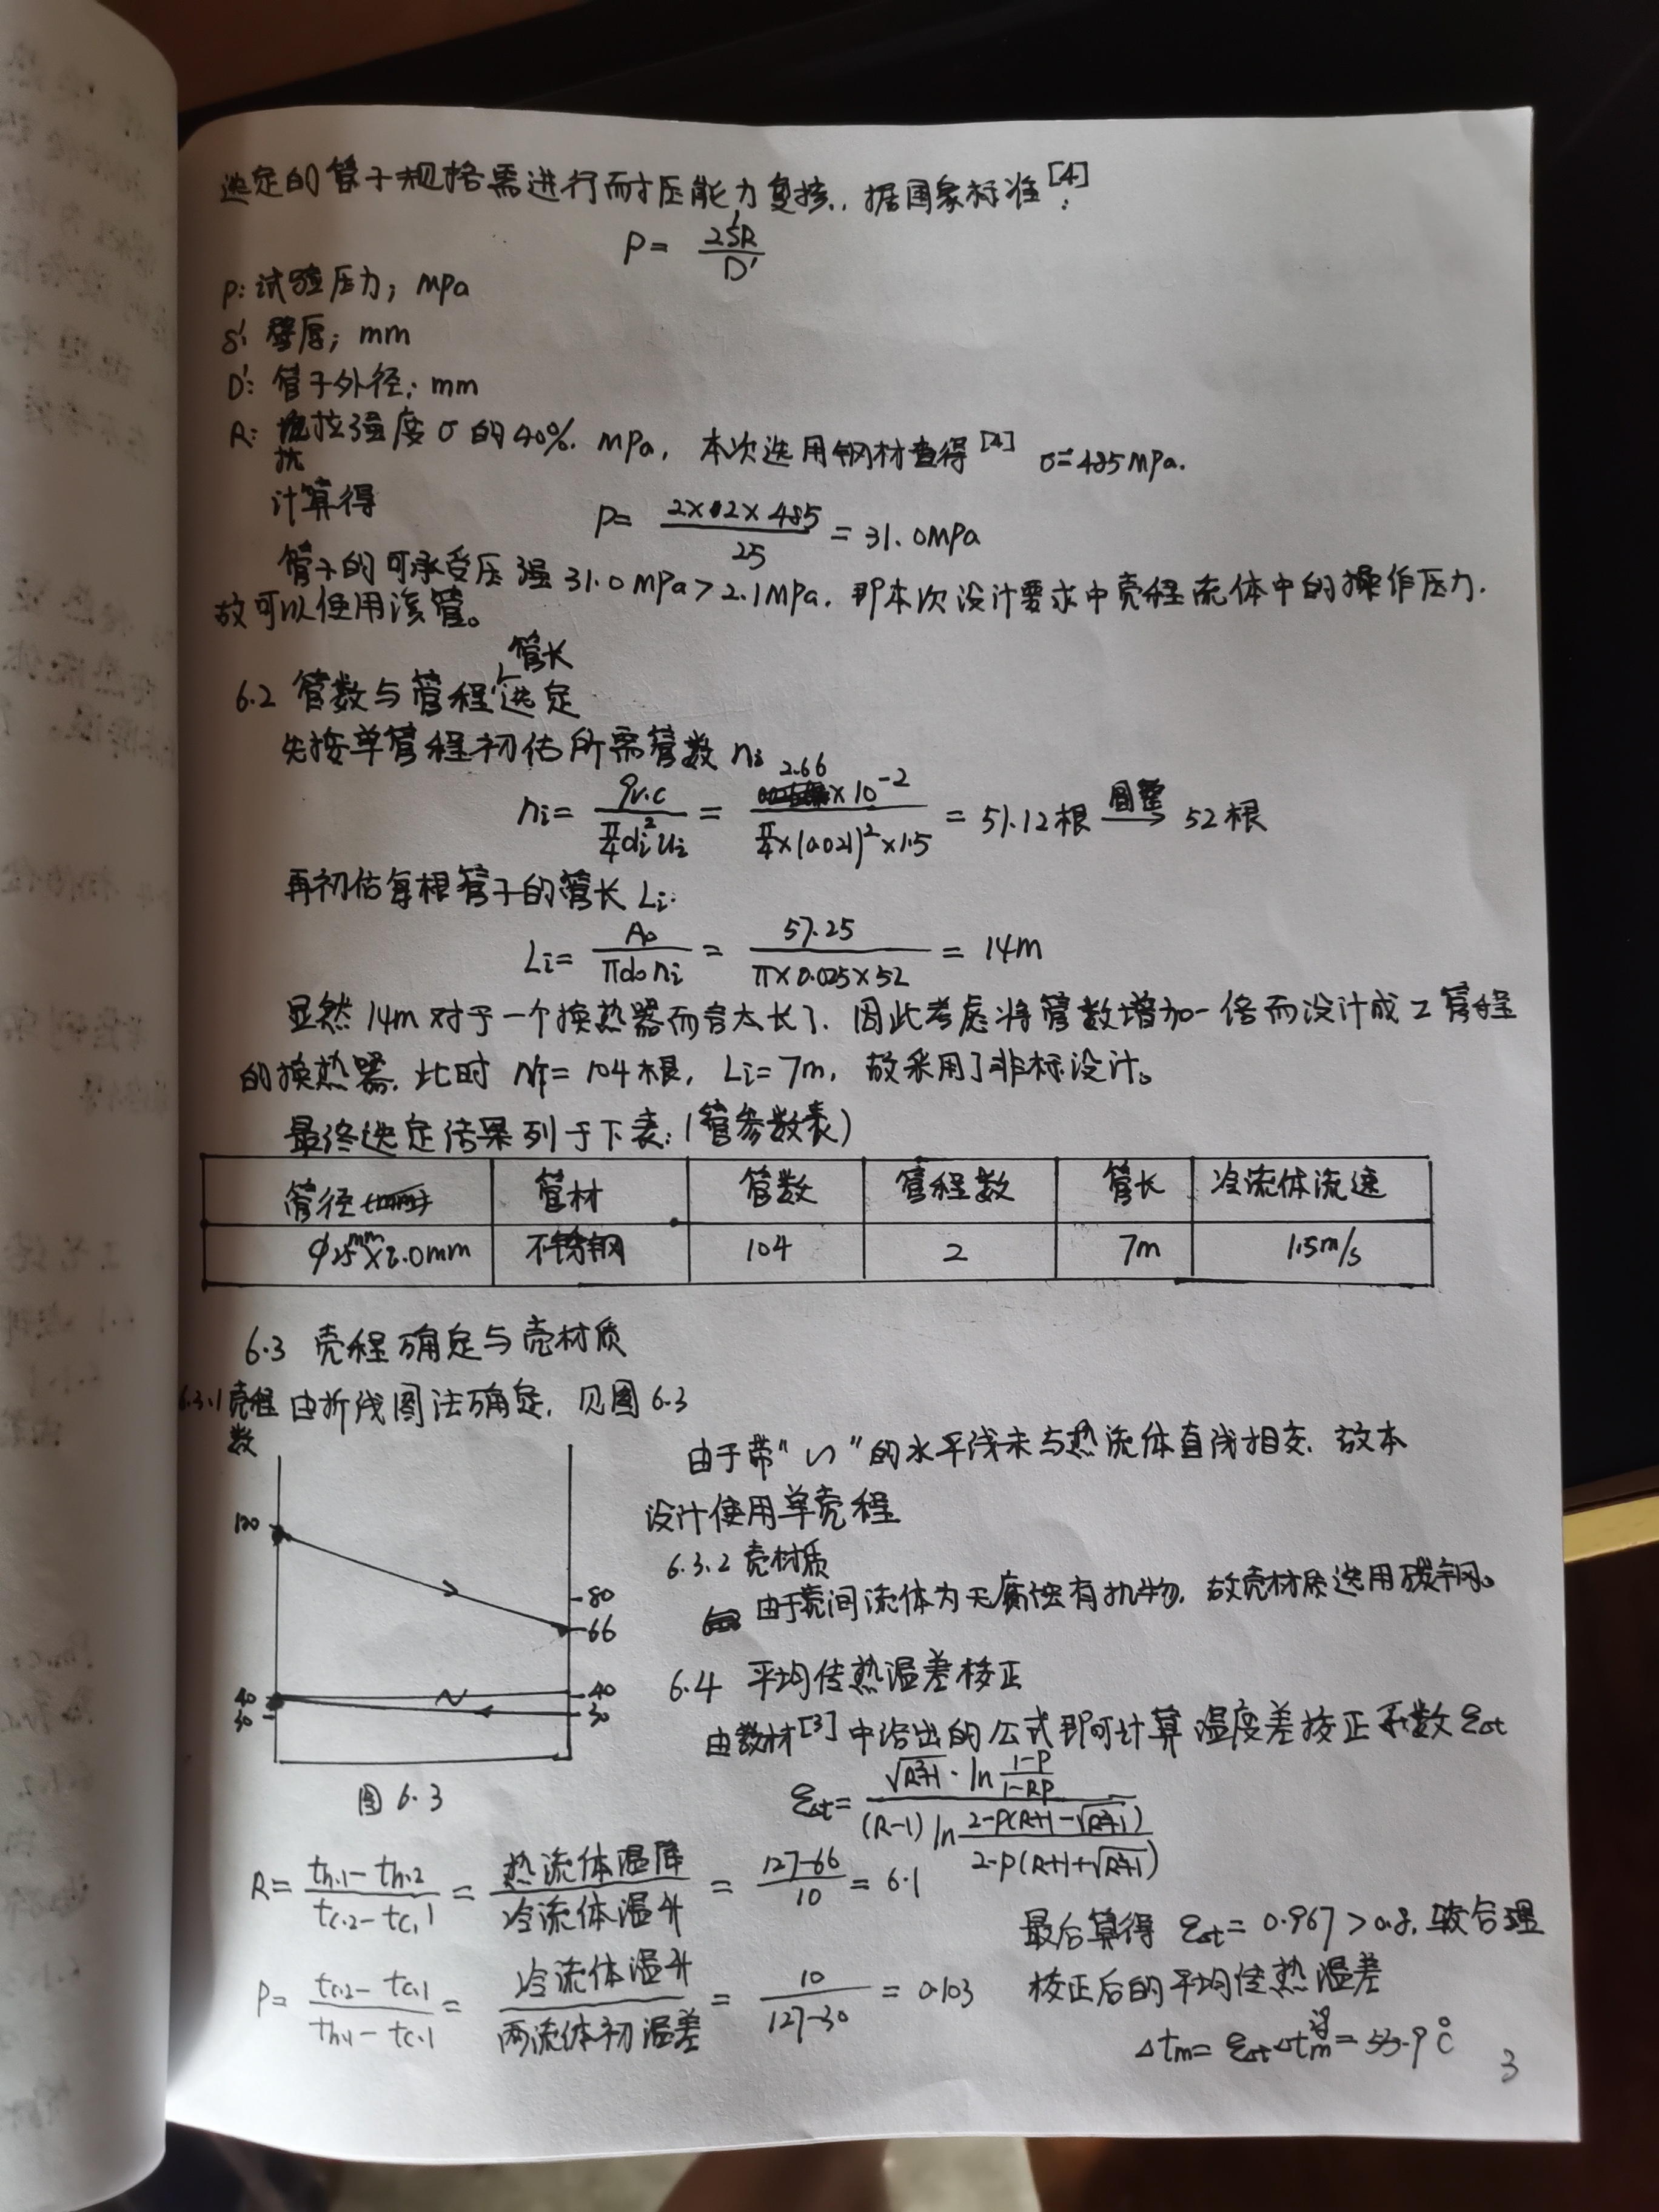 选定的管子规格需进行耐压能力复核，据国家标准[4]：
P= 2S'R/D'
P: 试验压力；MPa
S': 壁厚；mm
D': 管子外径；mm
R: 抗拉强度σ的40%. MPa, 本次选用钢材查得[4] σ=485MPa.
计算得
P= 2×2×485/25 = 31.0MPa
管子的可承受压强31.0MPa>2.1MPa, 即本次设计要求中壳程流体中的操作压力.
故可以使用该管。
6.2 管数与管程、管长选定
先按单管程初估所需管数 ni
ni= qv.c/(π/4 di²ui) = 2.66×10⁻²/(π/4×(0.021)²×1.5) = 51.12根 圆整→ 52根
再初估每根管子的管长 Li:
Li= A0/(πd0ni) = 57.25/(π×0.025×52) = 14m
显然14m对于一个换热器而言太长了. 因此考虑将管数增加一倍而设计成2管程
的换热器. 此时 NT= 104根, Li=7m, 故采用了非标设计。
最终选定结果列于下表: (管参数表)
管径 管材 管数 管程数 管长 冷流体流速
φ25mm×2.0mm 不锈钢 104 2 7m 1.5m/s
6.3 壳程确定与壳材质
6.3.1壳程数 由折线图法确定, 见图6.3
由于带"∽"的水平线未与热流体直线相交. 故本
设计使用单壳程
6.3.2 壳材质
由于壳间流体为无腐蚀有机物, 故壳材质选用碳钢。
120
80
66
40 ~ 40
30 30
图6.3
6.4 平均传热温差校正
由教材[3]中给出的公式即可计算温度差校正系数εΔt
εΔt= √(R²+1)·ln((1-P)/(1-RP)) / ((R-1)ln((2-P(R+1-√(R²+1)))/(2-P(R+1+√(R²+1)))))
R= (th.1-th.2)/(tc.2-tc.1) = 热流体温降/冷流体温升 = (127-66)/10 = 6.1
P= (tc.2-tc.1)/(th.1-tc.1) = 冷流体温升/两流体初温差 = 10/(127-30) = 0.103
最后算得 εΔt= 0.967>0.8, 较合理
校正后的平均传热温差
Δtm= εΔtΔtm逆= 53.9℃
3